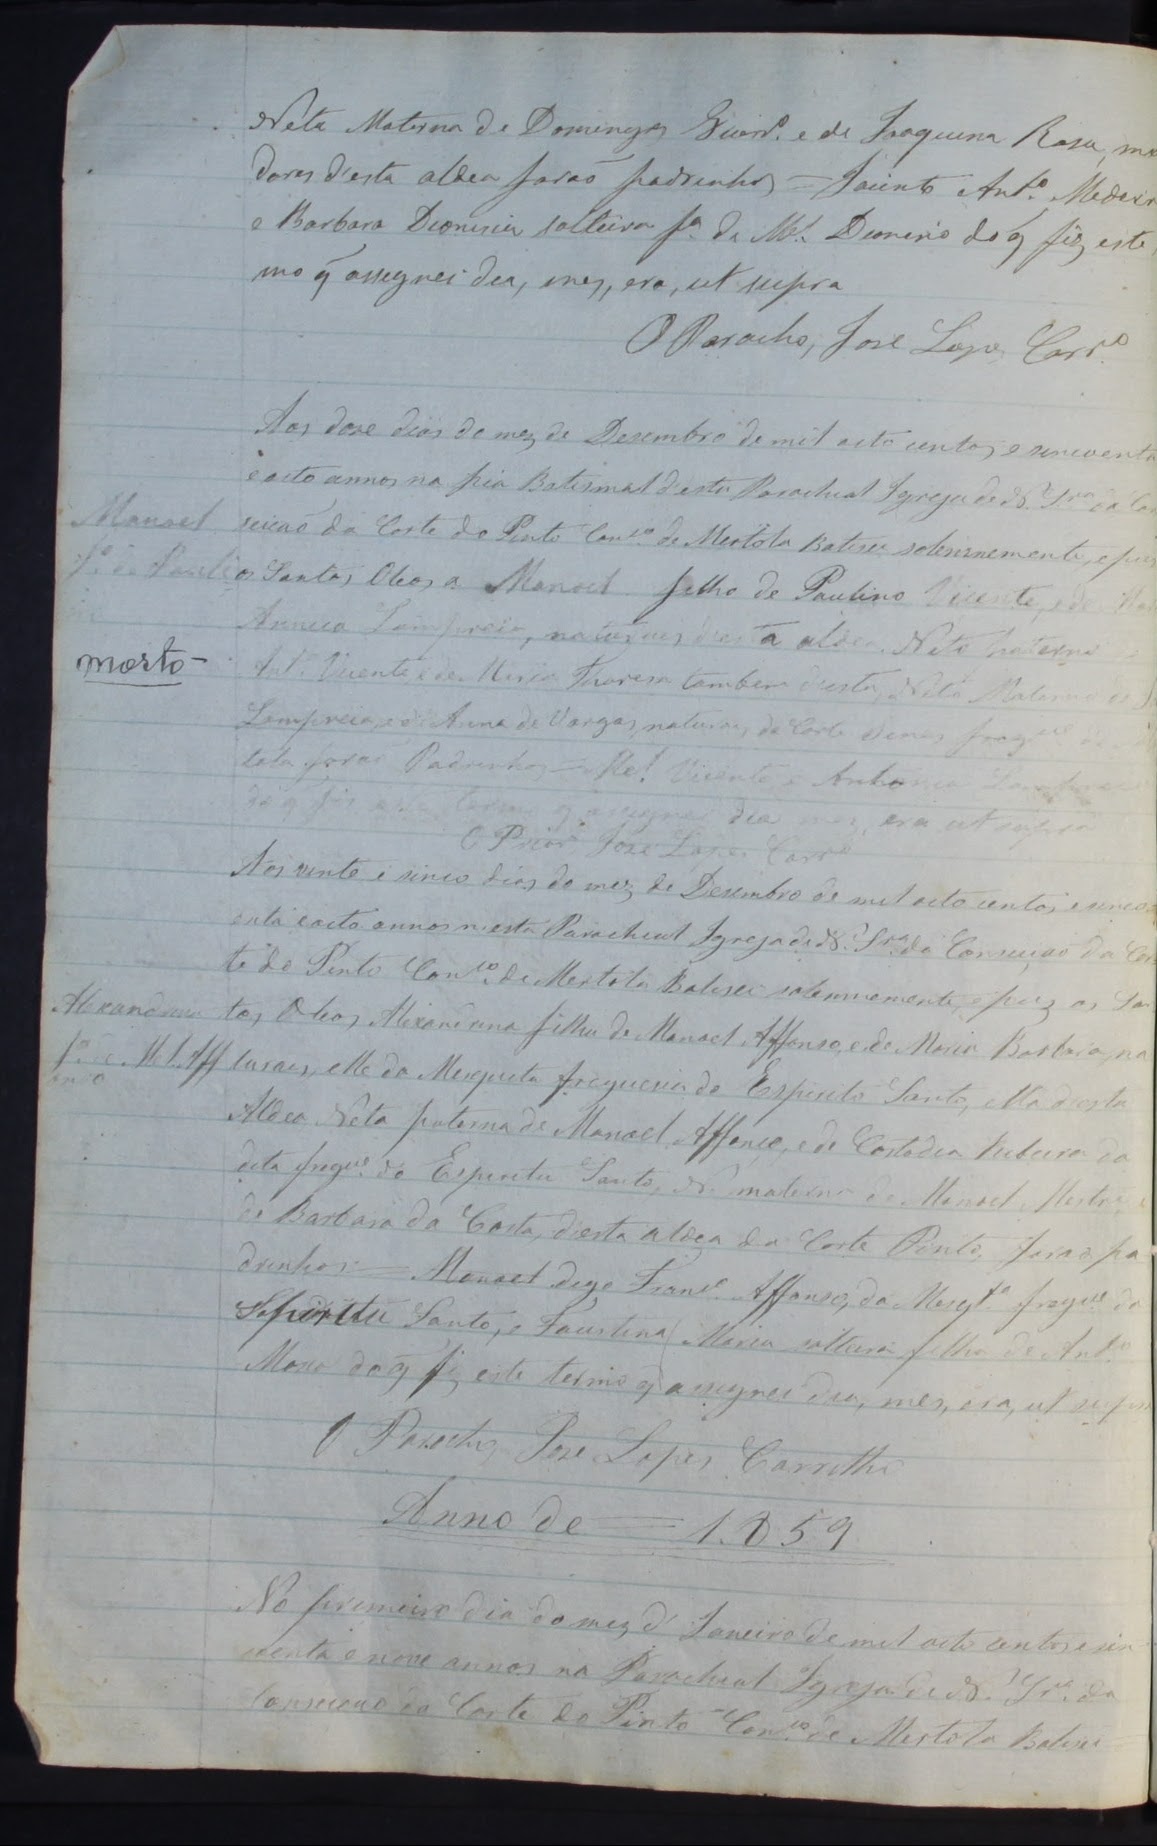 Neta Materna de Domingos Guerr.º e de Joaquina Rosa, mo
dores d'esta aldea forão padrinhos = Jacinto Ant.º Medeir
e Barbara Dionisia solteira f.ª de M.el Dionisio do q̃ fiz este
mo q̃ assignei dia, mez, era, ut supra
O Parocho, Jose Lopes Carr.º
Aos dose dias do mez de Desembro de mil oito centos e sincoenta
e oito annos na pia Batismal d'esta Parochial Igreja de N. Sr.ª da Con
Manoel
seicaõ da Corte do Pinto Con.co de Mertola Batisei solemnemente, e puz
f.º de Pauli
os Santos Oleos a Manoel filho de Paulino Vicente, e de
no
Annica Lampreia, naturaes d'esta aldea. Neto paterno
morto
Ant.º Vicente, e de Maria Thareza tambem d'esta, Neto Materno de
Lampreia, e de Anna de Vargas, naturaes da Corte freg.ue de
tola forão Padrinhos = M.el Vicente e Antonia Lampreia
do q̃ fiz este termo q̃ assignei dia mez, era ut supra
O Prior Jose Lopes Carr.º
Aos vinte i sinco dias do mez de Desembro de mil oito centos e sinco
enta e oito annos n'esta Parochial Igreja de N. Sr.ª da Conseiçaõ da Cor
te do Pinto Con.co de Mertola Batisei solemnemente, e puz os San
Alexandrina
tos Oleos Alexandrina filha de Manoel Affonso, e de Maria Barbara, na
f.ª de M.el Aff
turaes, elle da Mesquita freguesia do Espirito Santo, ella d'esta
onso
Aldea Neta paterna de Manoel Affonso, e de Custodia Ribeira da
dita freg.ue do Espirito Santo, N. materna de Manoel Mestre, e
de Barbara da Costa, d'esta aldea da Corte Pinto, forao pa
drinhos = Manoel digo Fran.co Affonso, da Mesq.ta freg.ue do
Espiritu Santo, e Faustina Maria solteira filha de Ant.º
do q̃ fiz este termo q̃ assignei dia, mes, era, ut supra
O Parocho Jose Lopes Carrilho
Anno de == 1.859
No primeiro dia do mez d' Janeiro de mil oito centos e sin
coenta e nove annos na Parochial Igreja de N. Sr.ª da
Conseicao da Corte do Pinto Con.co de Mertola Batisei